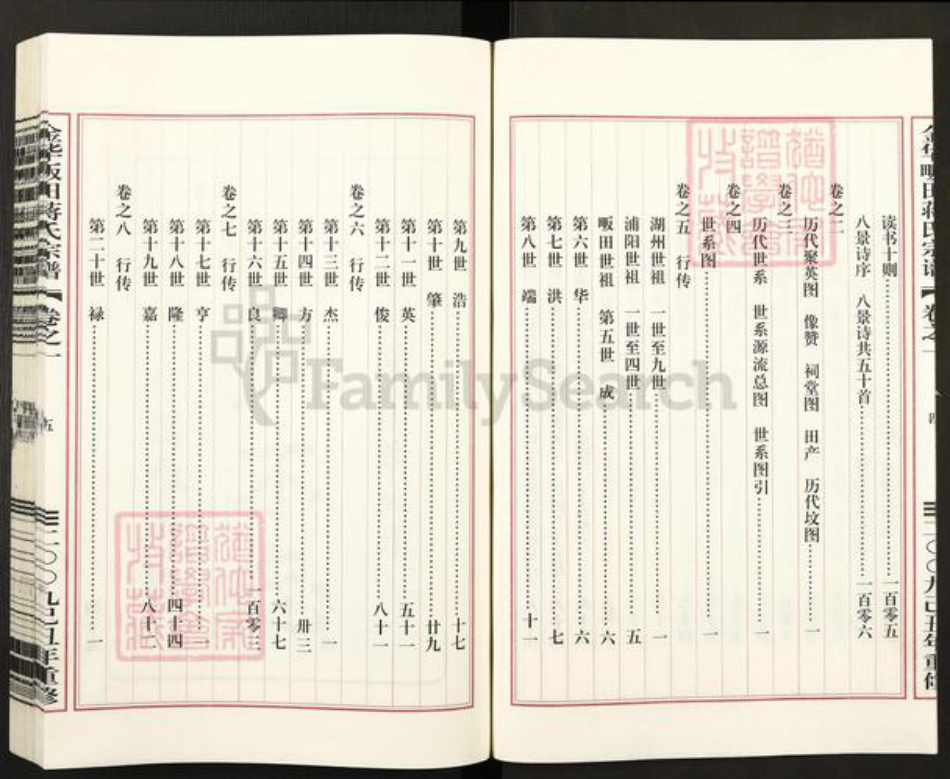 读书十则……一百零五
八景诗序 八景诗共五十首……一百零六
卷之二
历代聚英图 像赞 祠堂图 田产 历代坟图……一
卷之三
历代世系 世系源流总图 世系图引
卷之四
世系图……一
卷之五 行传
湖州世祖 一世至九世……一
浦阳世祖 一世至四世……五
畈田世祖 第五世 成……六
第六世 华……六
第七世 洪……七
第八世 端……十一
第九世 浩……十七
第十世 肇……廿九
第十一世 英……五十一
第十二世 俊……八十一
卷之六 行传
第十三世 杰……一
第十四世 方……卅三
第十五世 卿……六十七
第十六世 良……一百零三
卷之七 行传
第十七世 亨……一
第十八世 隆……四十四
第十九世 嘉……八十二
卷之八 行传
第二十世 禄……一
金华畈田蒋氏宗谱
卷之一
五
二〇〇九己丑年重修
FamilySearch